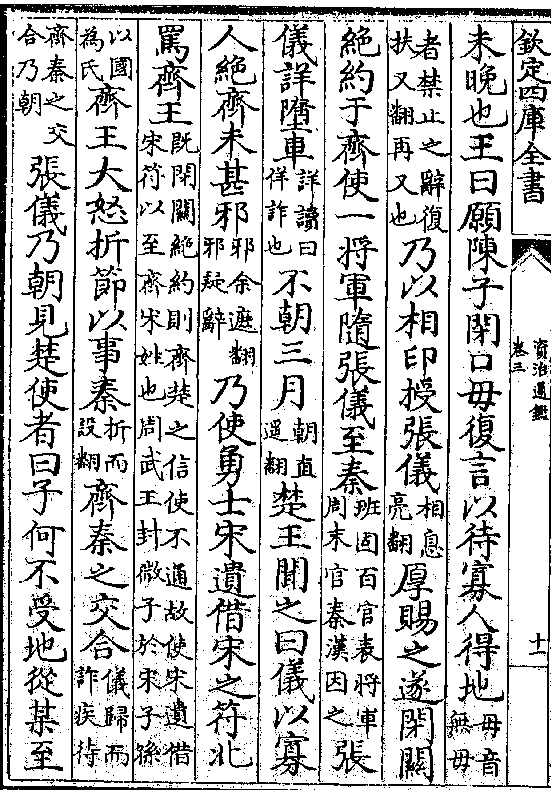 欽定四庫全書
資治通鑑
卷三
十一
未晚也王曰願陳子閉口毋復言以待寡人得地毋音無毋
者禁止之辭復扶又翻再又也乃以相印授張儀相息亮翻厚賜之遂閉關
絶約于齊使一將軍隨張儀至秦班固百官表將軍周末官秦漢因之張
儀詳墮車詳讀曰佯詐也不朝三月朝直遥翻楚王聞之曰儀以寡
人絶齊未甚邪邪余遮翻邪疑辭乃使勇士宋遺借宋之符北
罵齊王既閉關絶約則齊楚之信使不通故使宋遺借宋符以至齊宋姓也周武王封微子於宋子孫
以國為氏齊王大怒折節以事秦折而設翻齊秦之交合儀歸而詐疾待
齊秦之交合乃朝張儀乃朝見楚使者曰子何不受地從某至